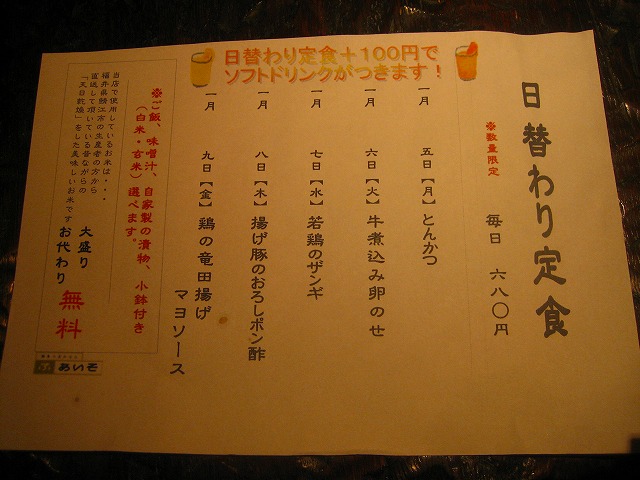 日替わり定食＋100円で
ソフトドリンクがつきます！
日替わり定食
※数量限定
毎日 六八〇円
一月 五日【月】とんかつ
一月 六日【火】牛煮込み卵のせ
一月 七日【水】若鶏のザンギ
一月 八日【木】揚げ豚のおろしポン酢
一月 九日【金】鶏の竜田揚げ
マヨソース
※ご飯、味噌汁、自家製の漬物、小鉢付き
（白米・玄米）選べます。
当店で使用しているお米は・・・
福井県鯖江市の生産者の方から
直送して頂いている昔ながらの
「天日乾燥」をした美味しいお米です
大盛り
お代わり
無料
あいそ